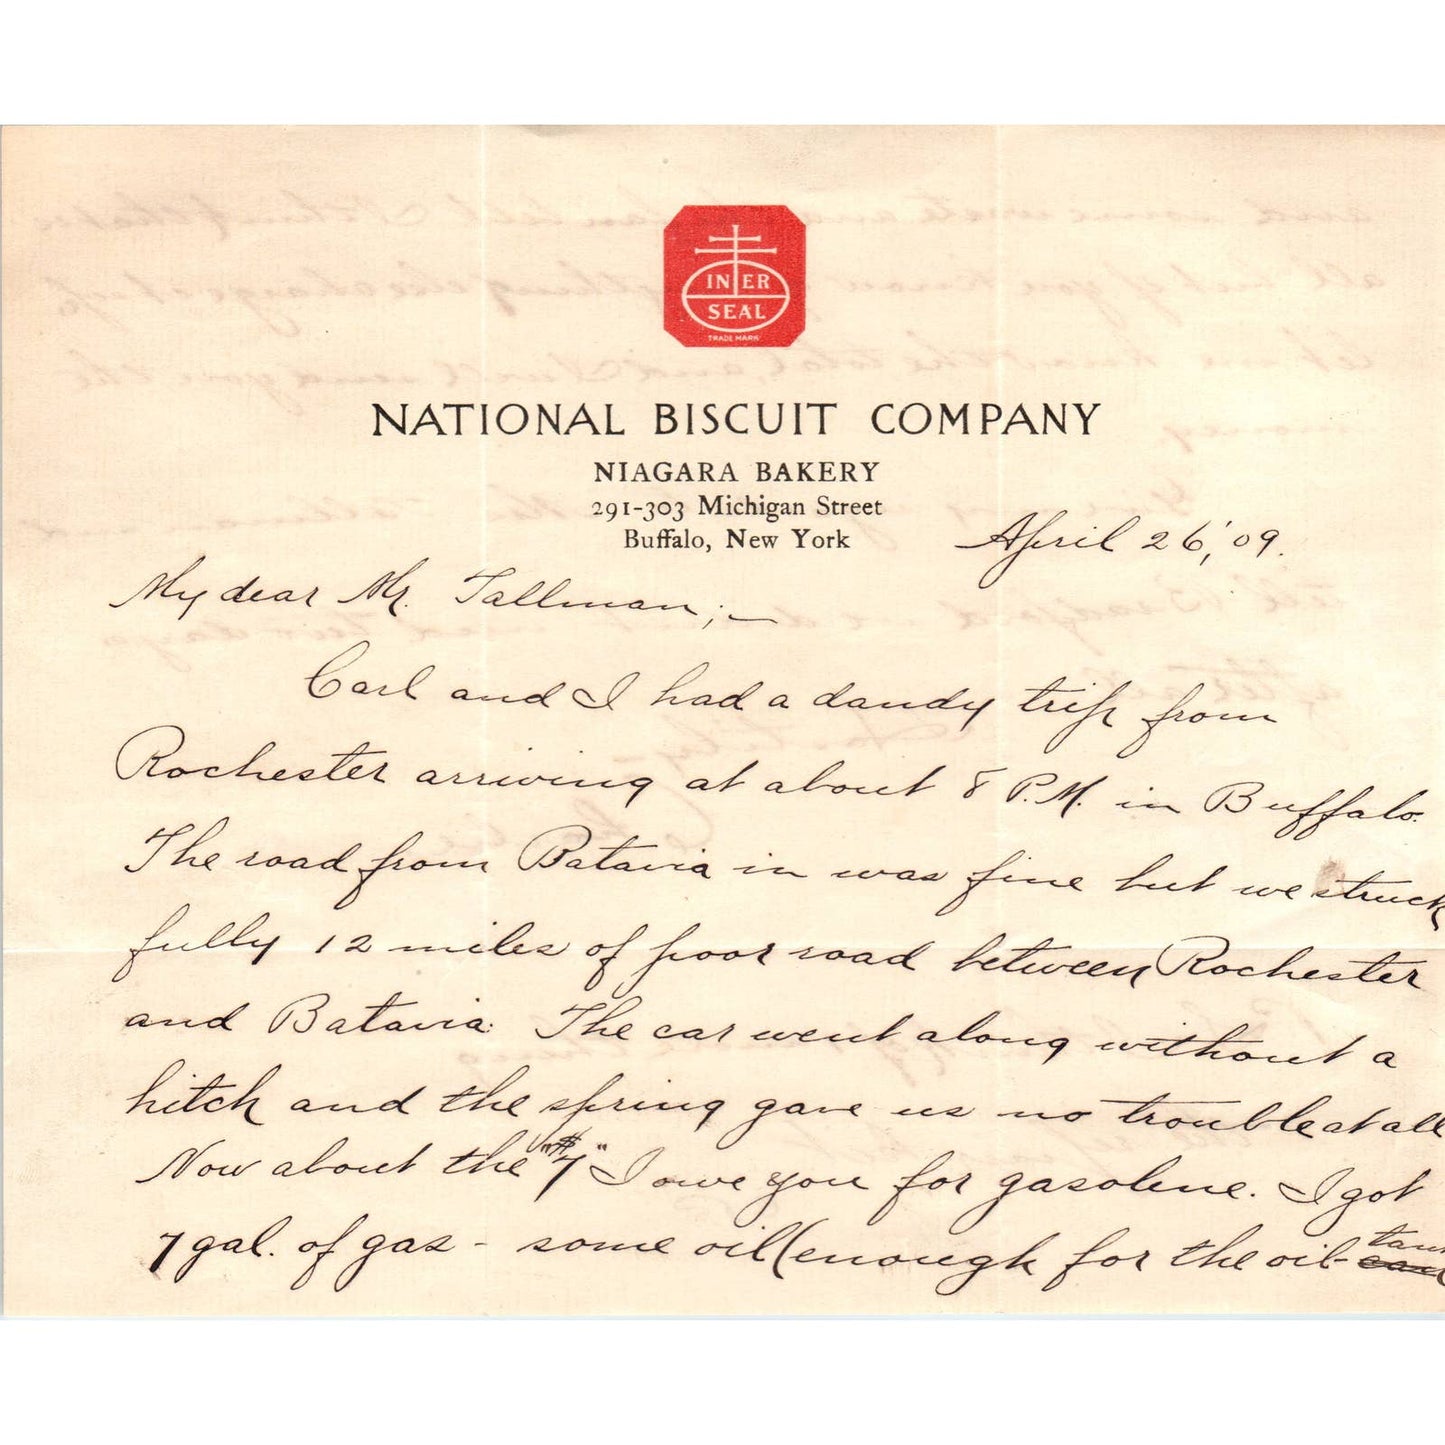 INTER
SEAL
TRADE MARK
NATIONAL BISCUIT COMPANY
NIAGARA BAKERY
291-303 Michigan Street
Buffalo, New York
April 26, '09.
My dear Mr. Tallman;—
Carl and I had a dandy trip from
Rochester arriving at about 8 P.M. in Buffalo.
The road from Batavia in was fine but we struck
fully 12 miles of poor road between Rochester
and Batavia. The car went along without a
hitch and the spring gave us no trouble at all
Now about the "$7" I owe you for gasolene. I got
7 gal. of gas - some oil (enough for the oil- tank